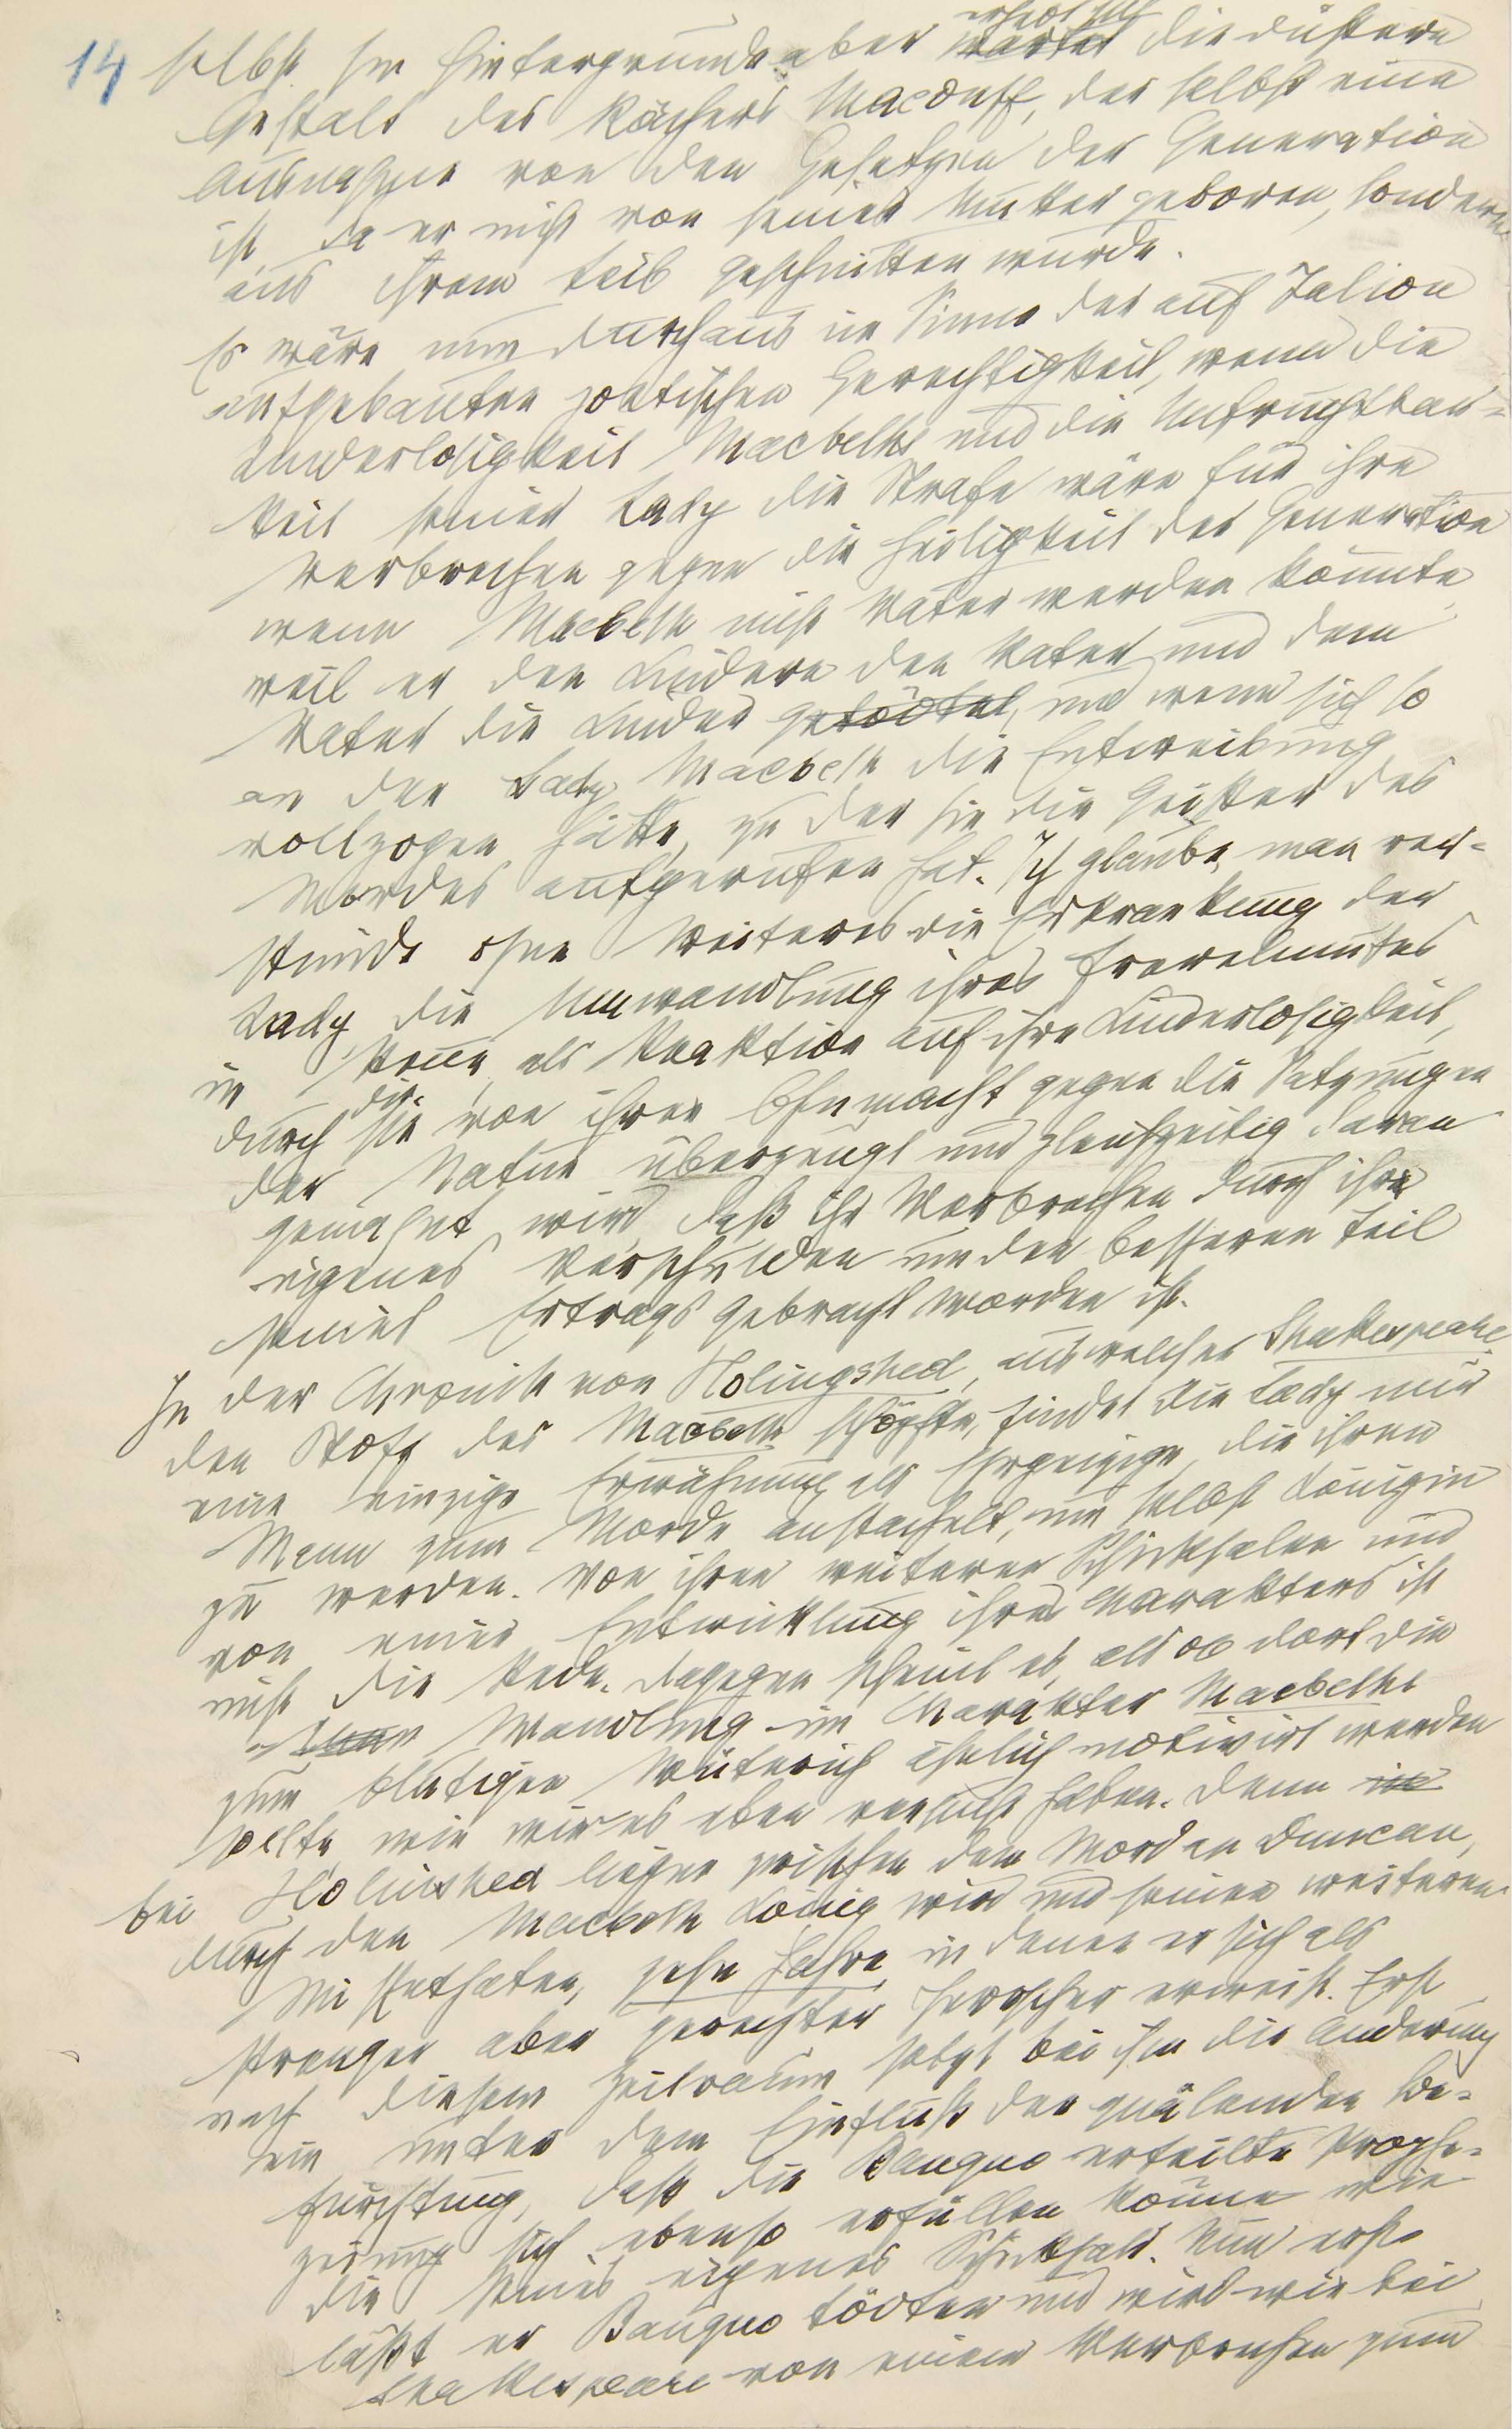 14 selbst. Im Hintergrunde aber erhebt sich wartet die düstere
Gestalt des Rächers Macduff, der selbst eine
Ausnahme von den Gesetzen der Generation
ist, da er nicht von seiner Mutter geboren, sondern
aus ihrem Leib geschnitten wurde.
Es wäre nun durchaus im Sinne der auf Talion
aufgebauten poetischen Gerechtigkeit, wenn die
Kinderlosigkeit Macbeths und die Unfruchtbar=
keit seiner Lady die Strafe wäre für ihre
Verbrechen gegen die Heiligkeit der Generation
wenn Macbeth nicht Vater werden könnte,
weil er den Kindern den Vater und dem
Vater die Kinder getödtet, und wenn sich so
an der Lady Macbeth die Entweibung
vollzogen hätte, zu der sie die Geister des
Mordes aufgerufen hat. Ich glaube, man ver=
stünde ohne Weiteres die Erkrankung der
Lady, die Umwandlung ihres Frevelmutes
in Reue, als Reaktion auf ihre Kinderlosigkeit,
durch die sie von ihrer Ohnmacht gegen die Satzungen
der Natur überzeugt und gleichzeitig daran
gemahnt wird, daß ihr Verbrechen durch ihr
eigenes Verschulden um den besseren Teil
seines Ertrags gebracht worden ist.
In der Chronik von Holingshed, aus welcher Shakespeare
den Stoff des Macbeth schöpfte, findet die Lady nur
eine einzige Erwähnung als Ehrgeizige, die ihren
Mann zum Morde anstachelt, um selbst Königin
zu werden. Von ihren weiteren Schicksalen und
von einer Entwicklung ihres Charakters ist
nicht die Rede. Dagegen scheint es, als ob dort die
Wandlung im Charakter Macbeths
zum blutigen Wüterich ähnlich motivirt werden
sollte, wie wir es eben versucht haben. Denn
bei Holinshed liegen zwischen dem Mord an Duncan,
durch den Macbeth König wird und seinen weiteren
Missethaten, zehn Jahre, in denen er sich als
strenger aber gerechter Herrscher erweist. Erst
nach diesem Zeitraum setzt bei ihm die Änderung
ein unter dem Einfluß der quälenden Be=
fürchtung, daß die Banquo erteilte Prophe=
zeiung sich ebenso erfüllen könne wie
die seines eigenes Schicksals. Nun erst
läßt er Banquo tödten und wird wie bei
Shakespeare von einem Verbrechen zum